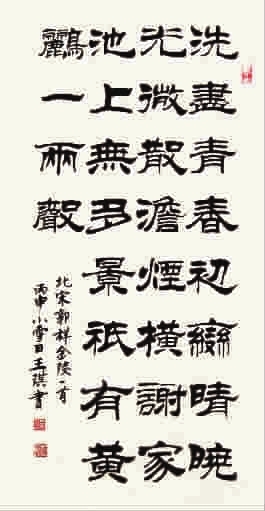 洗盡青春初變晴曉
光微散澹煙橫謝家
池上無多景祇有黃
鸝一兩聲
北宋郭祥金陵一首
丙申小雪日王琪書